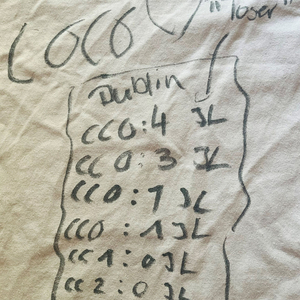 "loser"
Dublin
CCO:4 JL
CC0:3 JL
CC0:1 JL
CC0:1 JL
CC1:0 JL
CC2:0 JL